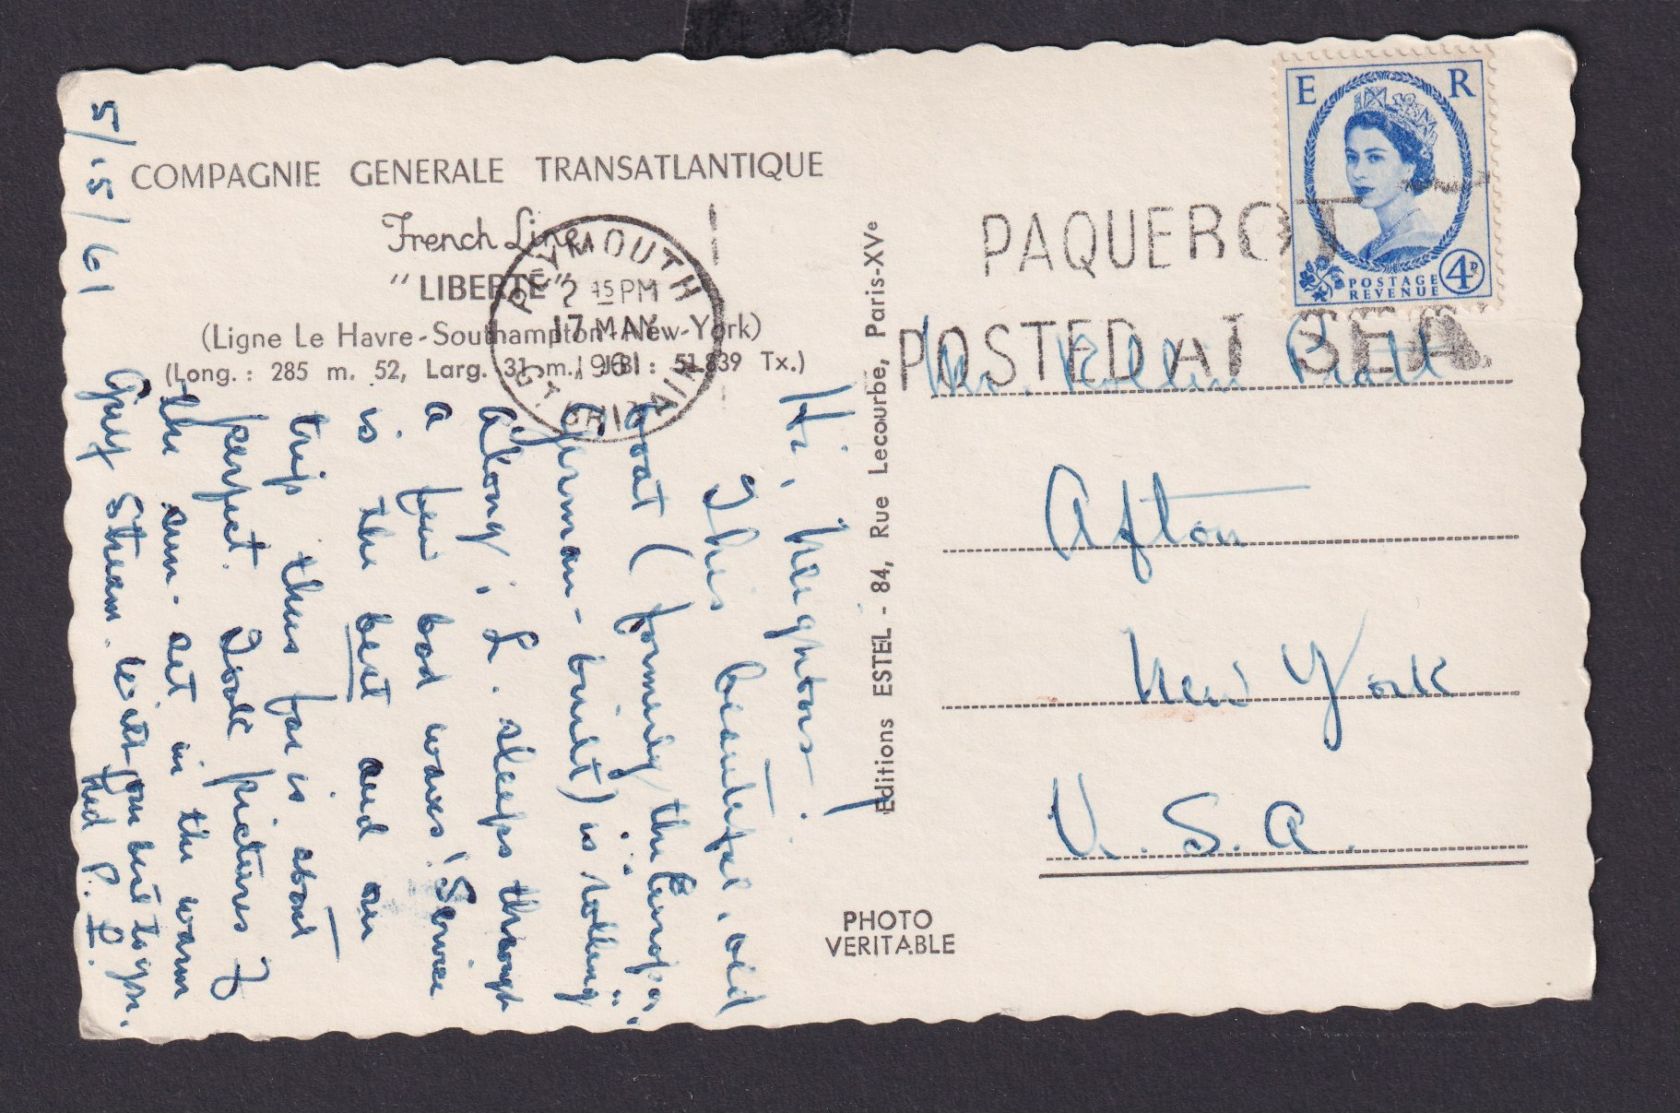 5/15/61
COMPAGNIE GENERALE TRANSATLANTIQUE
French Line
"LIBERTÉ"
(Ligne Le Havre-Southampton-New-York)
(Long. : 285 m. 52, Larg. 31 m., JBI : 51.839 Tx.)
PLYMOUTH
2 45 PM
17 MAY
1961
GT BRITAIN
Hi, Neighbors!
This beautiful, old
boat (formerly the "Europa",
German-built) is rolling
along; L. sleeps through
a few bad waves! Service
is the best and our
trip thus far is about
perfect. Took pictures of
the sun-set in the warm
Gulf Stream. With our best to you.
P. P.
Editions ESTEL - 84, Rue Lecourbe, Paris-XVe
PHOTO
VERITABLE
E R
POSTAGE
REVENUE
4D
PAQUEBOT
POSTED AT SEA
Mr. Rollin Pratt
Afton
New York
U.S.A.